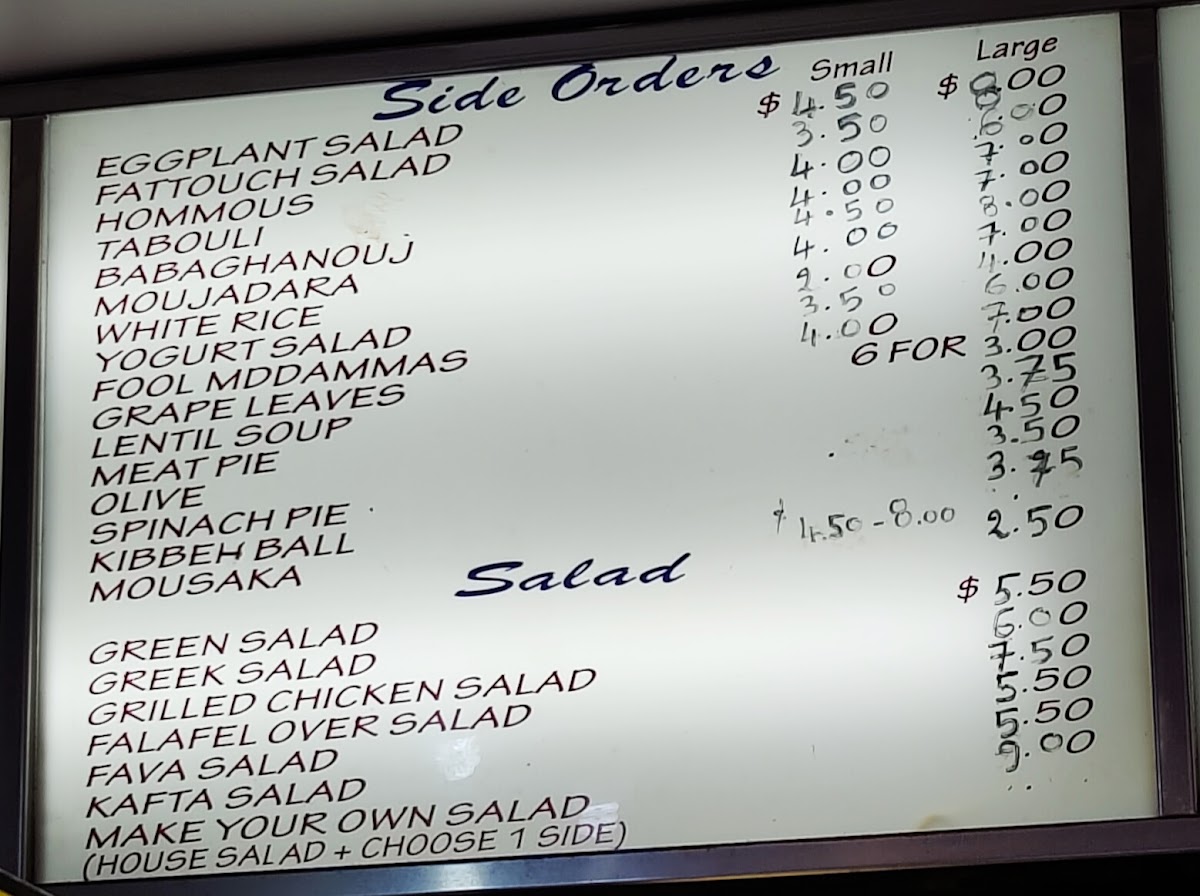 Side Orders Small Large
EGGPLANT SALAD $ 4.50 $ 8.00
FATTOUCH SALAD 3.50 6.00
HOMMOUS 4.00 7.00
TABOULI 4.00 7.00
BABAGHANOUJ 4.50 8.00
MOUJADARA 4.00 7.00
WHITE RICE 2.00 4.00
YOGURT SALAD 3.50 6.00
FOOL MDDAMMAS 4.00 7.00
GRAPE LEAVES 6 FOR 3.00
LENTIL SOUP 3.75
MEAT PIE 4.50
OLIVE 3.50
SPINACH PIE 3.75
KIBBEH BALL
MOUSAKA $ 4.50-8.00 2.50
Salad
GREEN SALAD $ 5.50
GREEK SALAD 6.00
GRILLED CHICKEN SALAD 7.50
FALAFEL OVER SALAD 5.50
FAVA SALAD 5.50
KAFTA SALAD 9.00
MAKE YOUR OWN SALAD
(HOUSE SALAD + CHOOSE 1 SIDE)